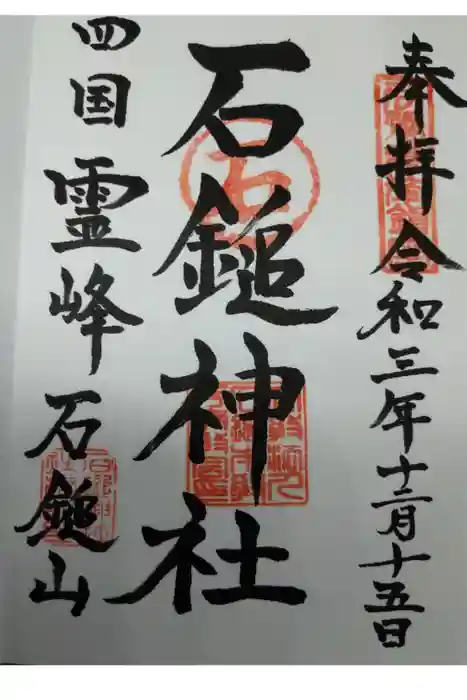 奉拝令和三年十二月十五日
石鎚神社
四国霊峰石鎚山